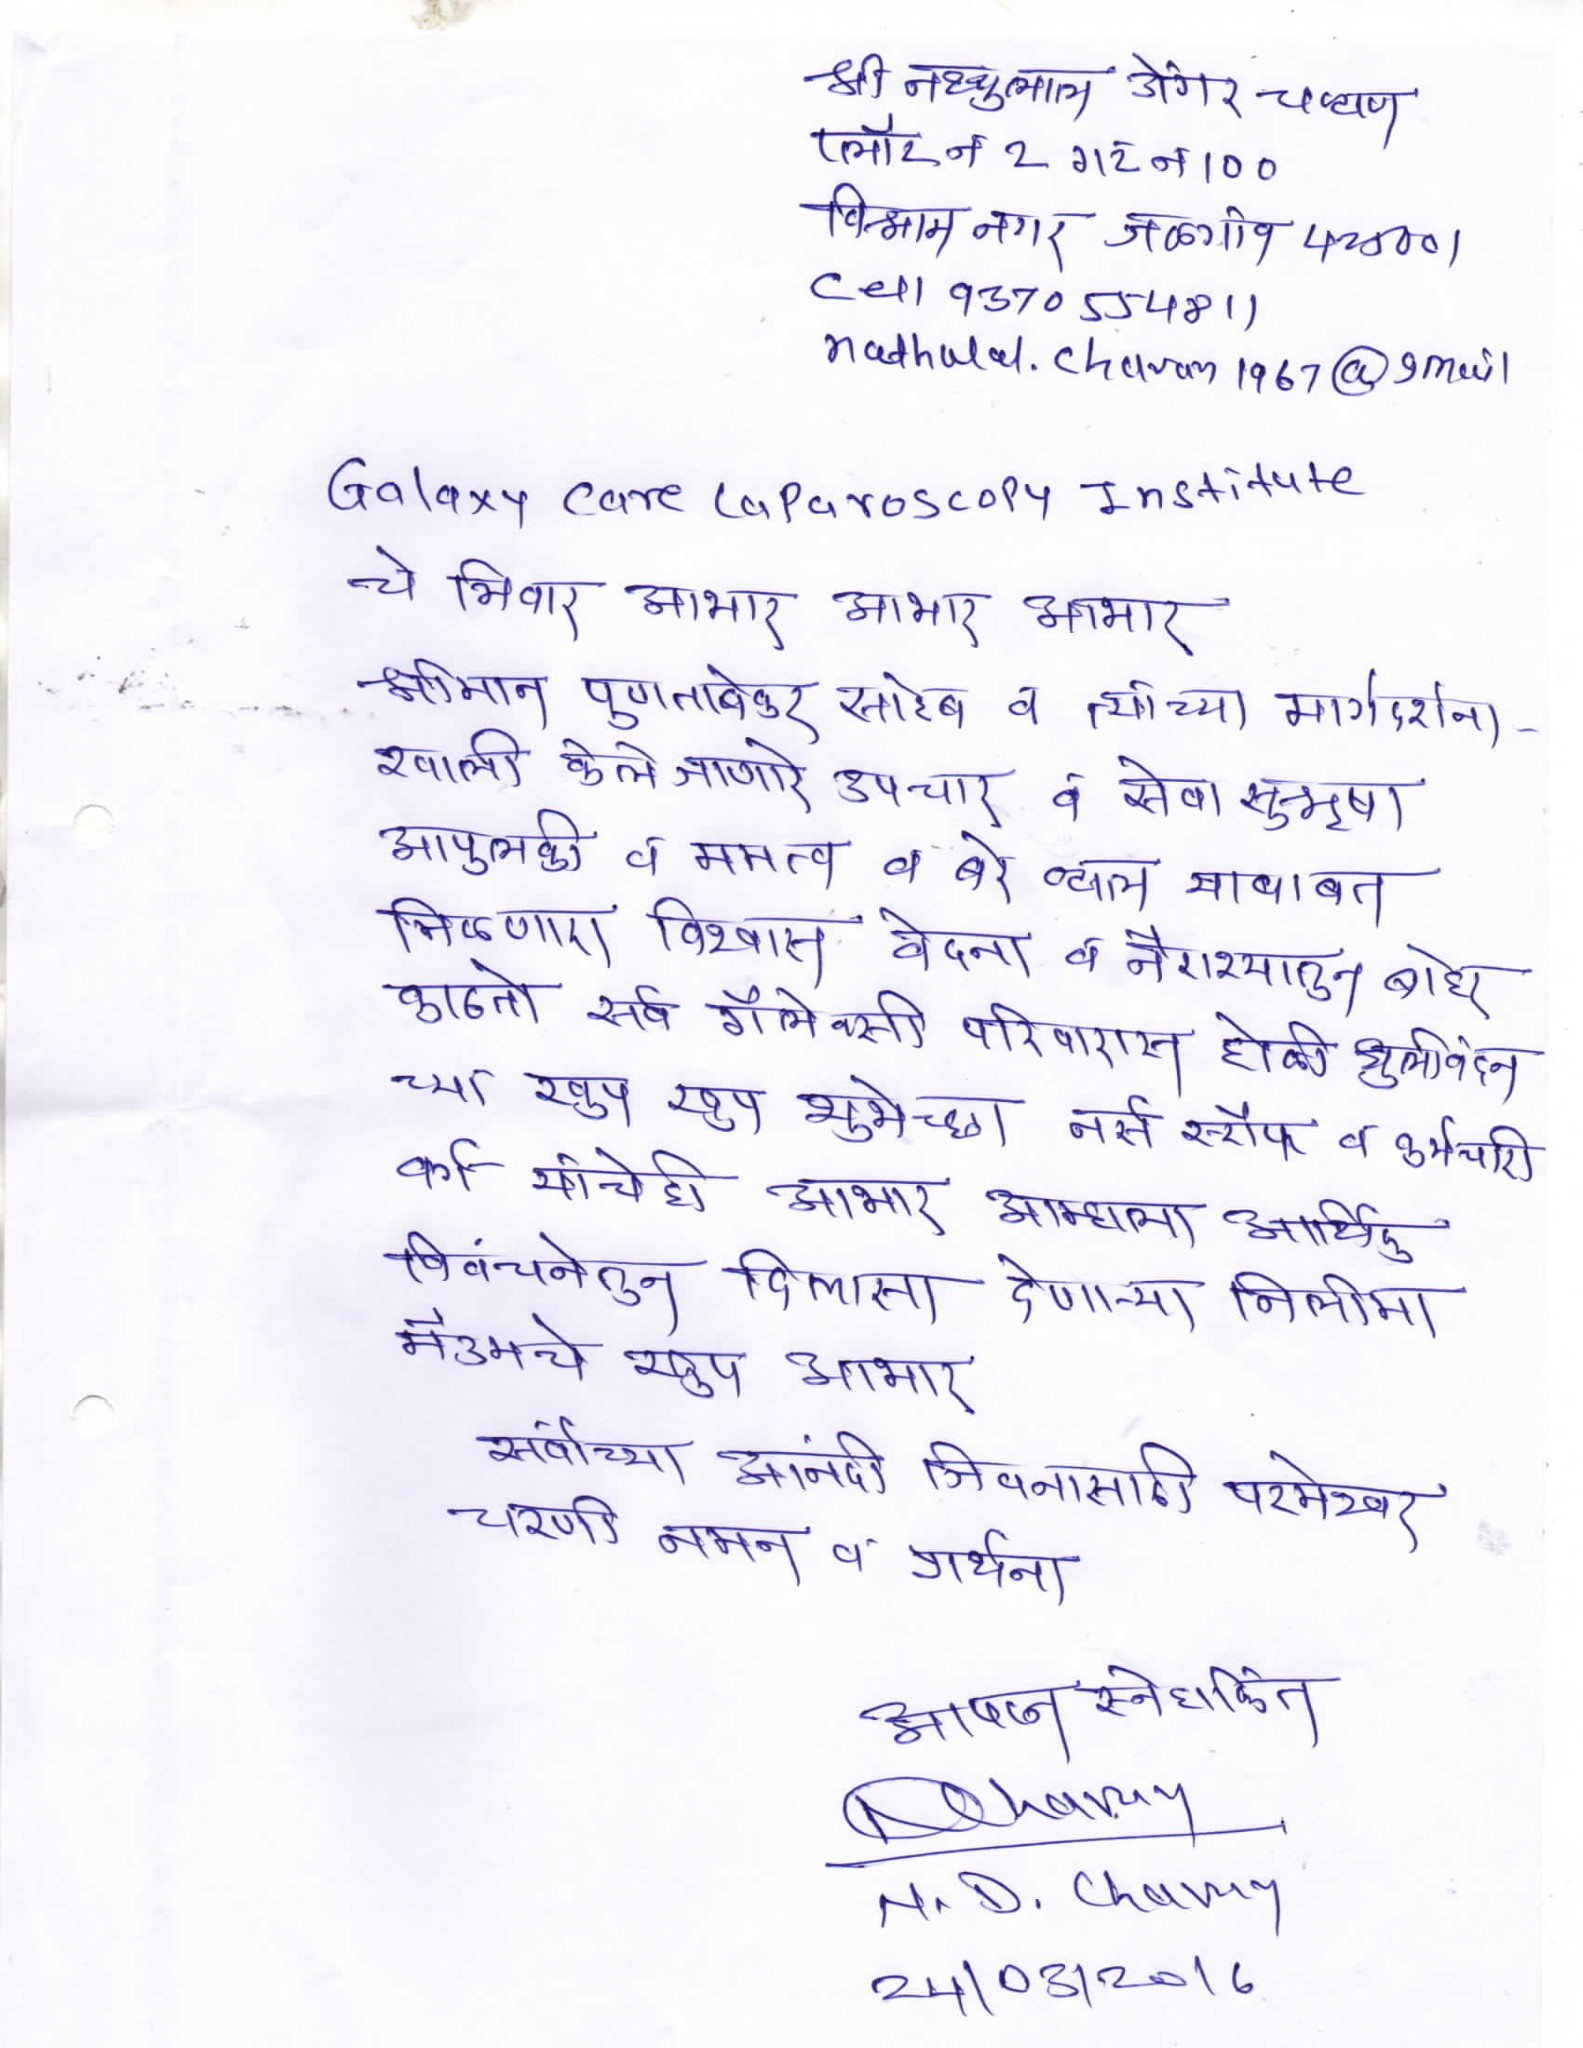 श्री नथ्थुलाल डोंगर चव्हाण
प्लॉट नं 2 गट नं 100
विश्राम नगर जळगांव 425001
Cell 9370554811
nathulal.chavan1967@gmail
Galaxy Care Laparoscopy Institute
चे त्रिवार आभार आभार आभार
श्रीमान पुणतांबेकर साहेब व त्यांच्या मार्गदर्शना-
खाली केले जाणारे उपचार व सेवा सुश्रृषा
आपुलकी व ममत्व व बरे व्हाल याबाबत
मिळणारा विश्वास वेदना व नैराश्यातुन बाहेर
काढतो सर्व गॅलेक्सी परिवारास होळी धुलीवंदन
च्या खुप खुप शुभेच्छा नर्स स्टॅाफ व कर्मचारी
वर्ग यांचेही आभार आम्हाला आर्थिक
विवंचनेतुन दिलासा देणाऱ्या निलीमा
मॅडमचे खुप आभार
सर्वांच्या आनंदी जिवनासाठी परमेश्वर
चरणी नमन व प्रार्थना
स्नेहांकित
Chavan
N. D. Chavan
24/03/2016